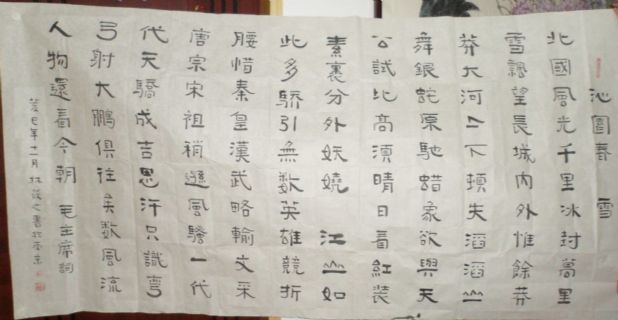 沁園春 雪
北國風光千里冰封萬里
雪飄望長城内外惟餘莽
莽大河上下頓失滔滔山
舞銀蛇原馳蜡象欲與天
公試比高須晴日看紅装
素裹分外妖嬈 江山如
此多驕引無数英雄競折
腰惜秦皇漢武略輸文采
唐宗宋祖稍遜風騷一代
代天驕成吉思汗只識彎
弓射大鵬俱往矣数風流
人物還看今朝 毛主席詞
癸巳年十一月